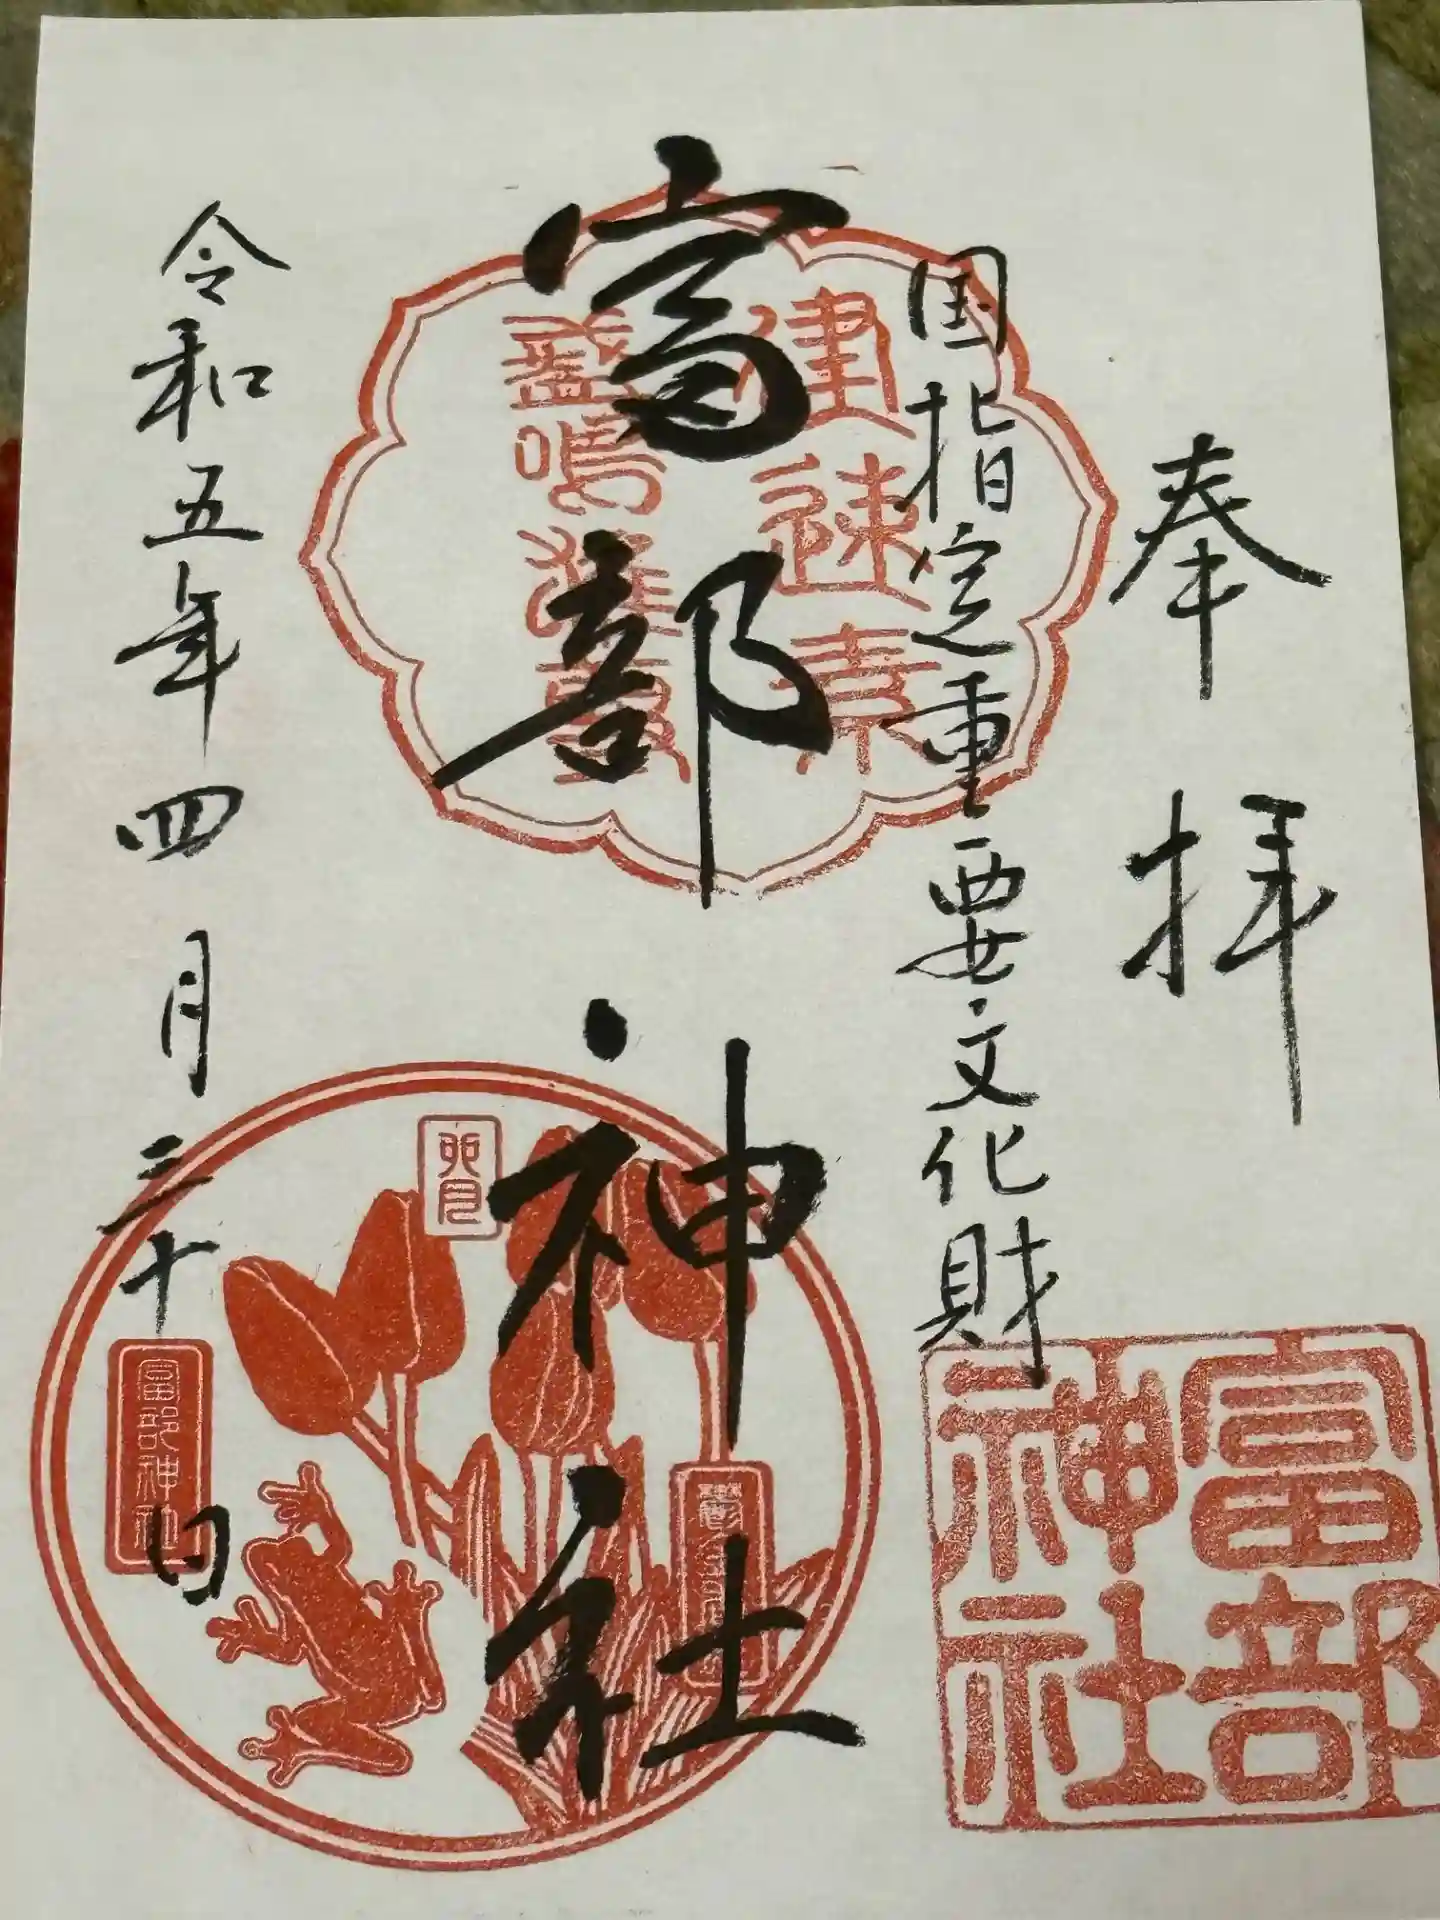 奉拝
国指定重要文化財
富部神社
建速素
盞嗚尊
富部神社
卯月
富部神社
令和五年四月三十日